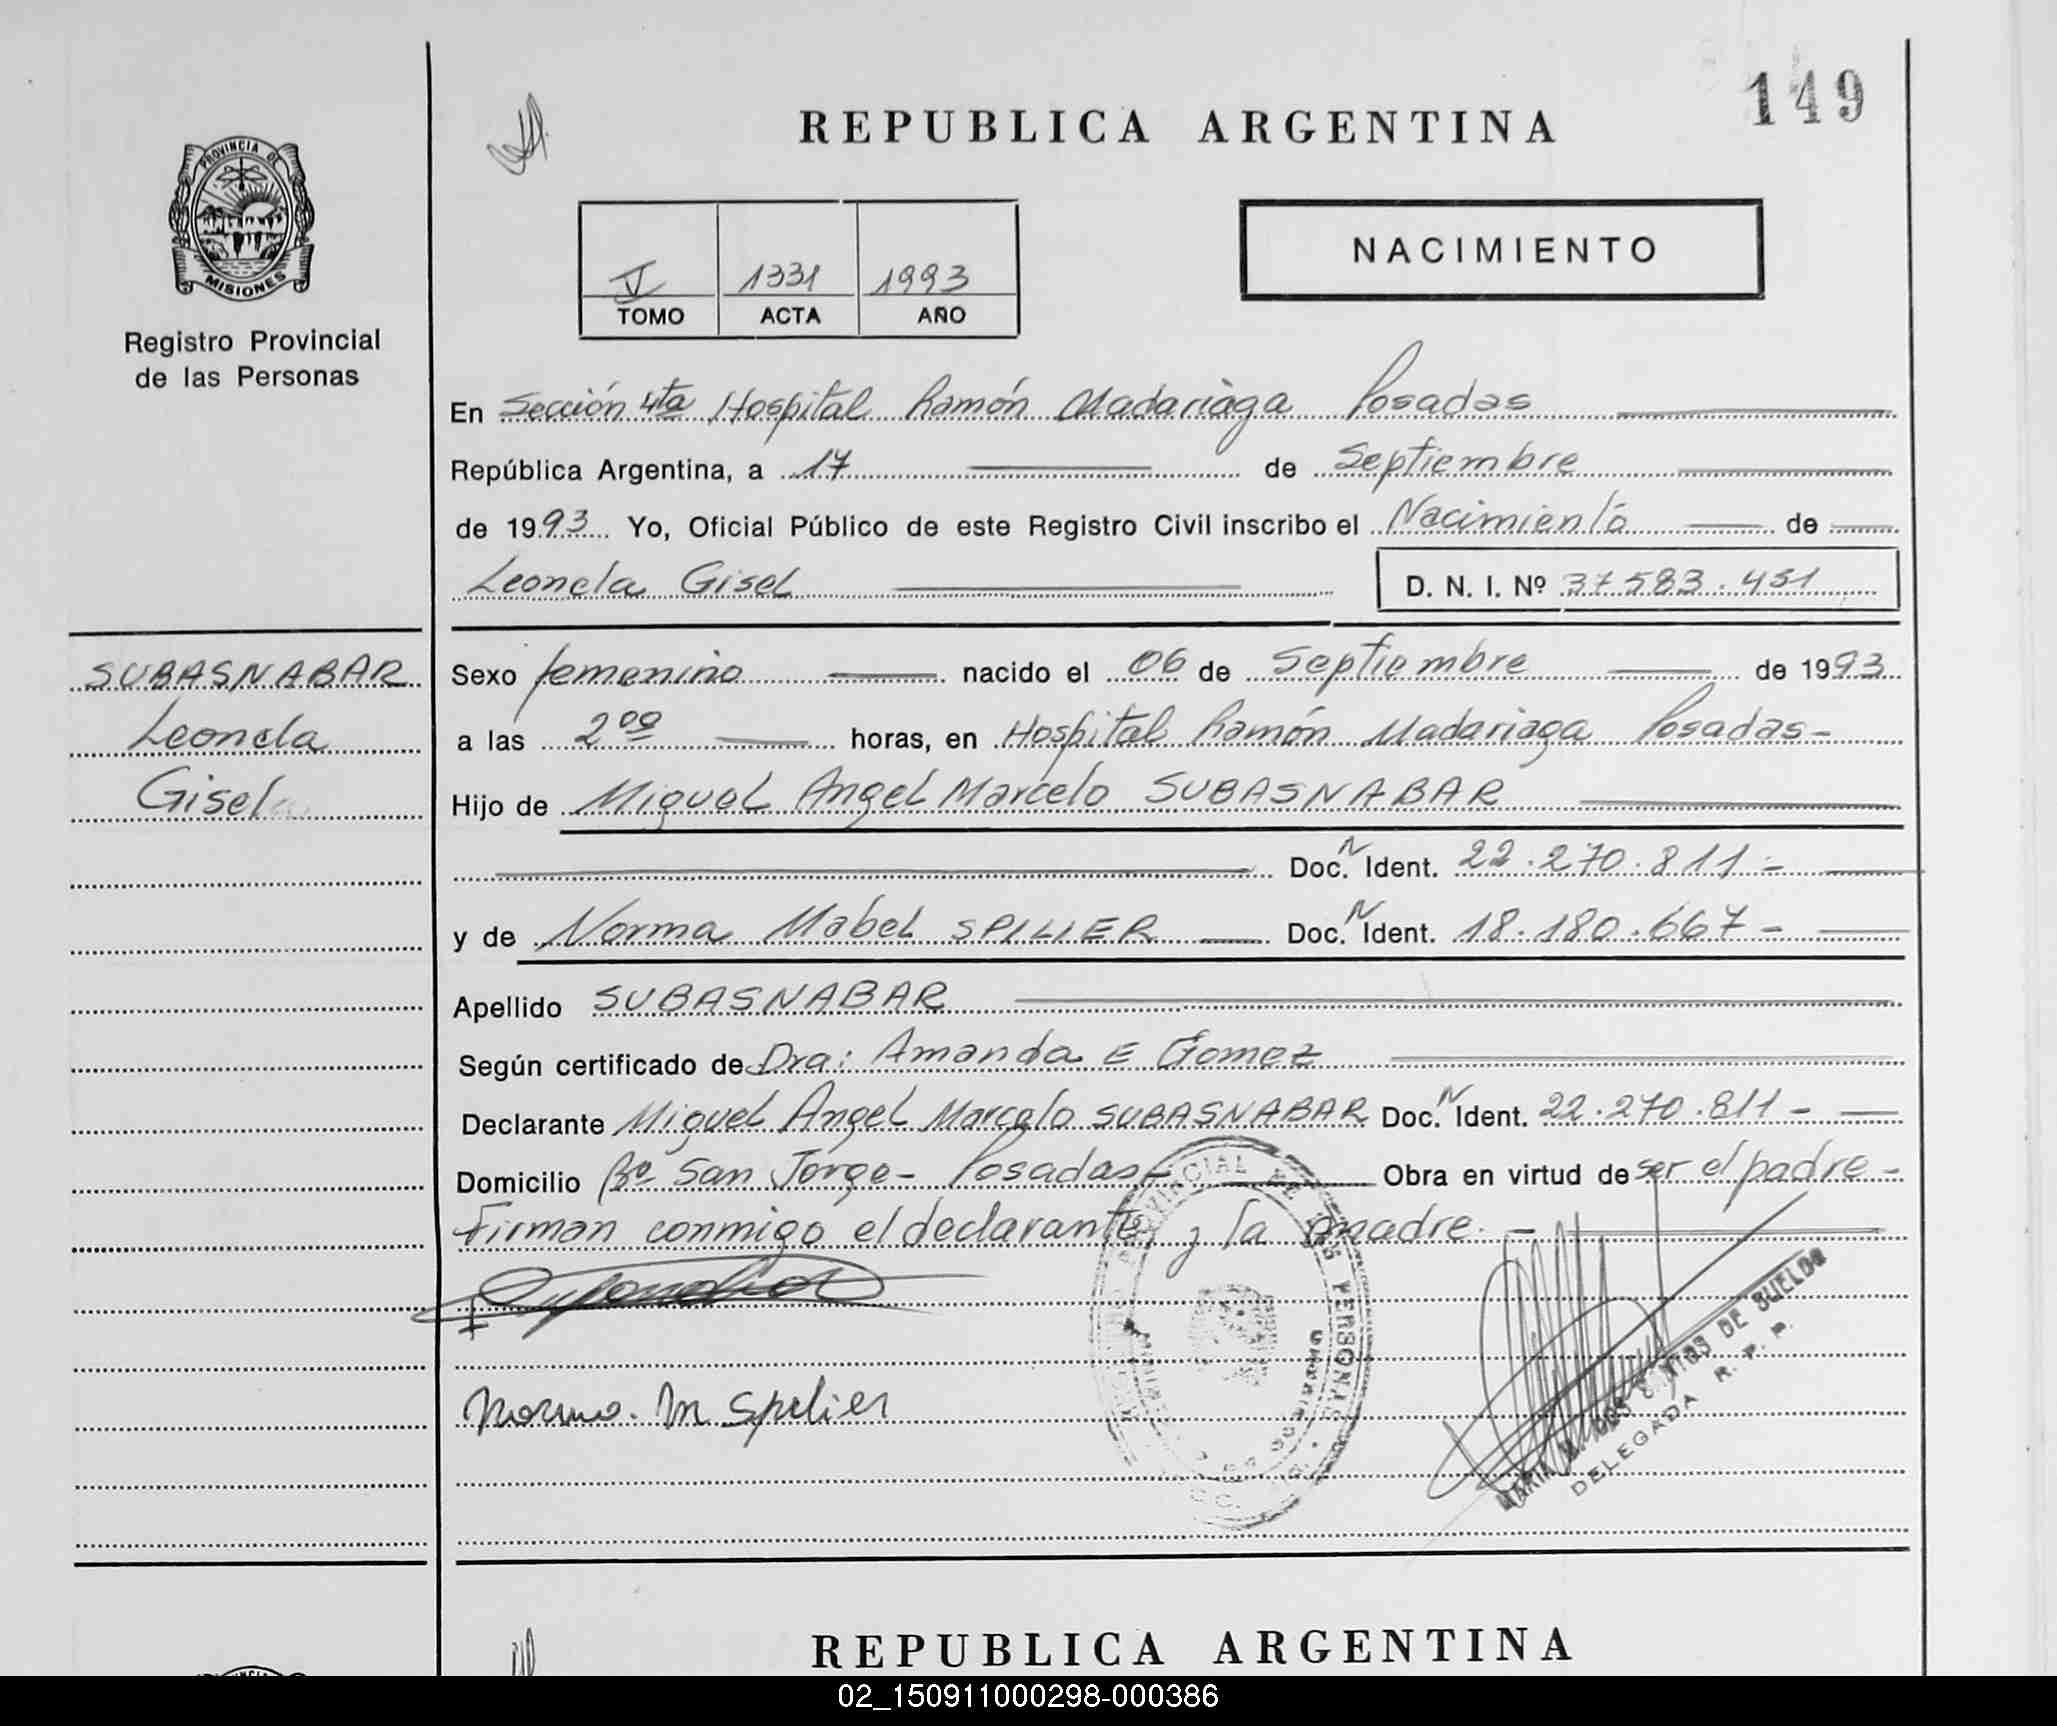 149
REPUBLICA ARGENTINA
PROVINCIA DE
MISIONES
Registro Provincial
de las Personas
V 1331 1993
TOMO ACTA AÑO
NACIMIENTO
En Sección 4ta Hospital Ramón Madariaga Posadas
República Argentina, a 17 de Septiembre
de 1993 Yo, Oficial Público de este Registro Civil inscribo el Nacimiento de
Leonela Gisel D. N. I. Nº 37583.451
SUBASNABAR
Leonela
Gisel
Sexo femenino nacido el 06 de Septiembre de 1993
a las 2 00 horas, en Hospital Ramón Madariaga Posadas-
Hijo de Miguel Angel Marcelo SUBASNABAR
Doc. N Ident. 22.270.811-
y de Norma Mabel SPILIER Doc. N Ident. 18.180.667-
Apellido SUBASNABAR
Según certificado de Dra: Amanda E Gomez
Declarante Miguel Angel Marcelo SUBASNABAR Doc. N Ident. 22.270.811-
Domicilio Bº San Jorge- Posadas- Obra en virtud de ser el padre-
Firman conmigo el declarante y la madre.-
Norma. M Spilier
PROVINCIAL DE LAS PERSONAS
MARIA DE SUELDO
DELEGADA R. P. P.
REPUBLICA ARGENTINA
02_150911000298-000386